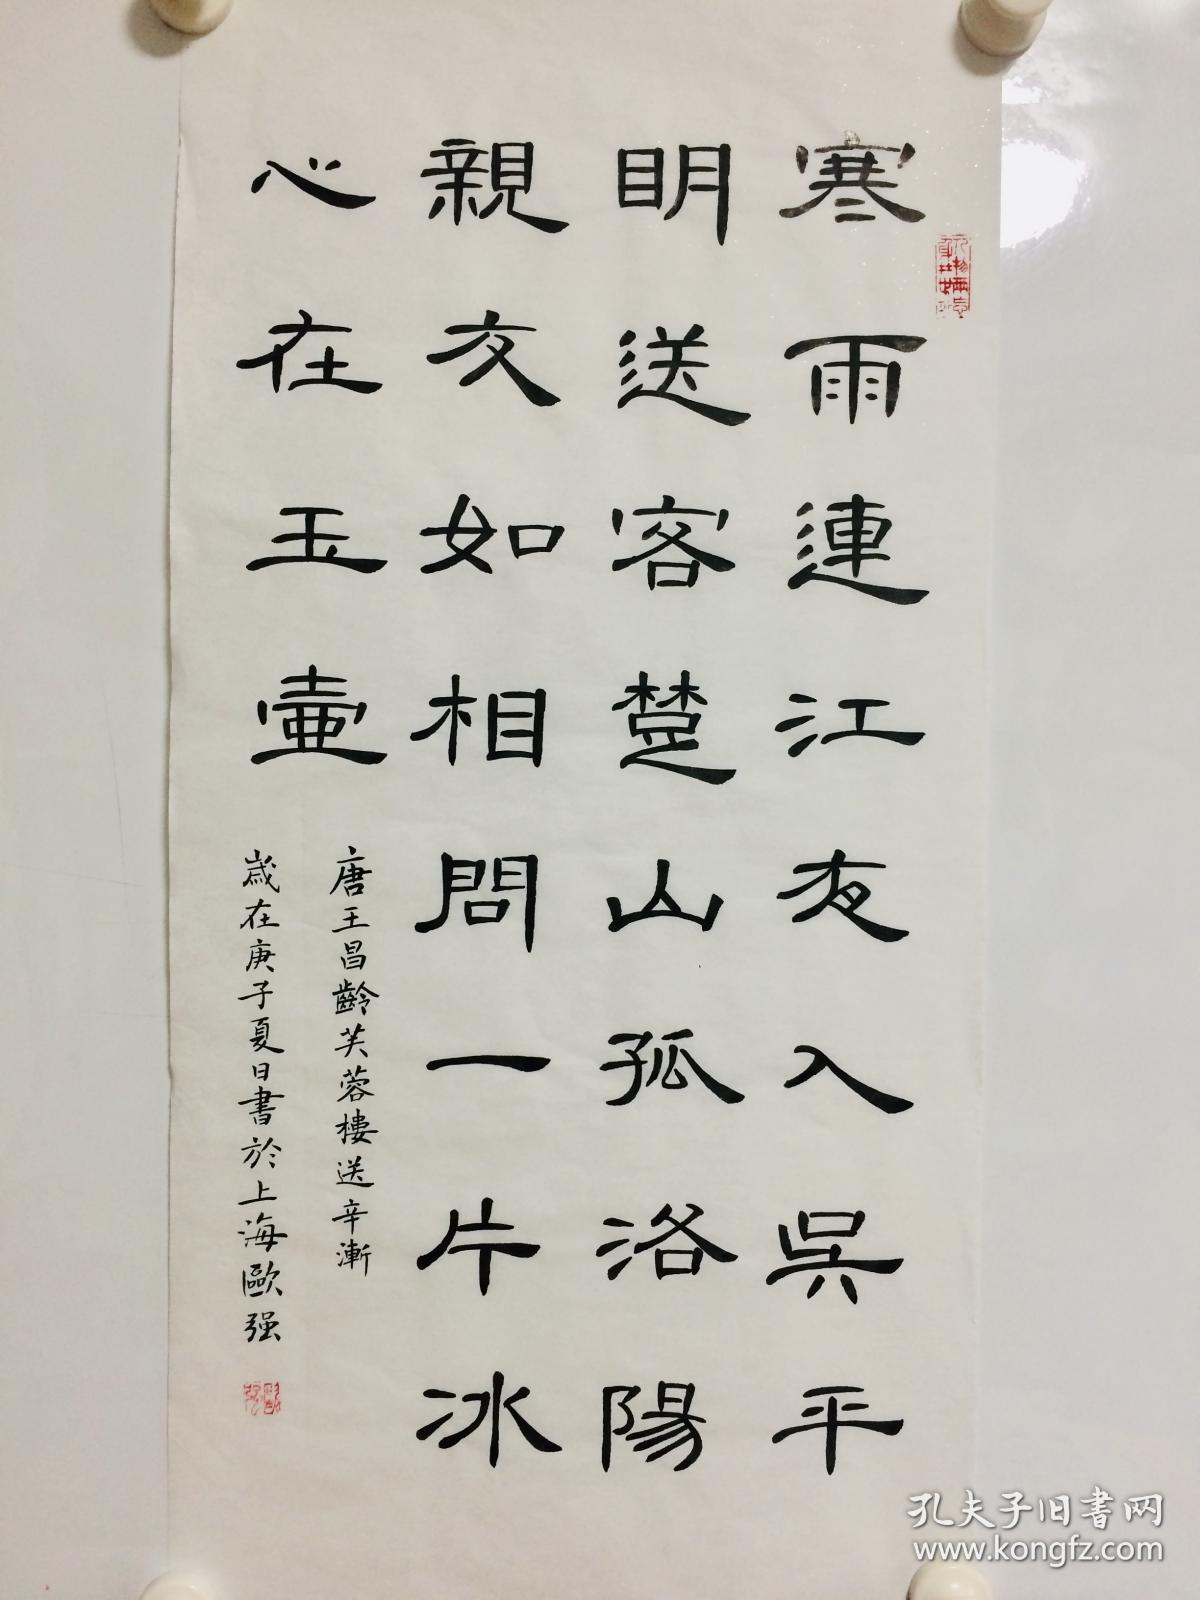 寒雨連江夜入吳平
明送客楚山孤洛陽
親友如相問一片冰
心在玉壺
唐王昌齡芙蓉樓送辛漸
歲在庚子夏日書於上海歐强
孔夫子旧书网
www.kongfz.com